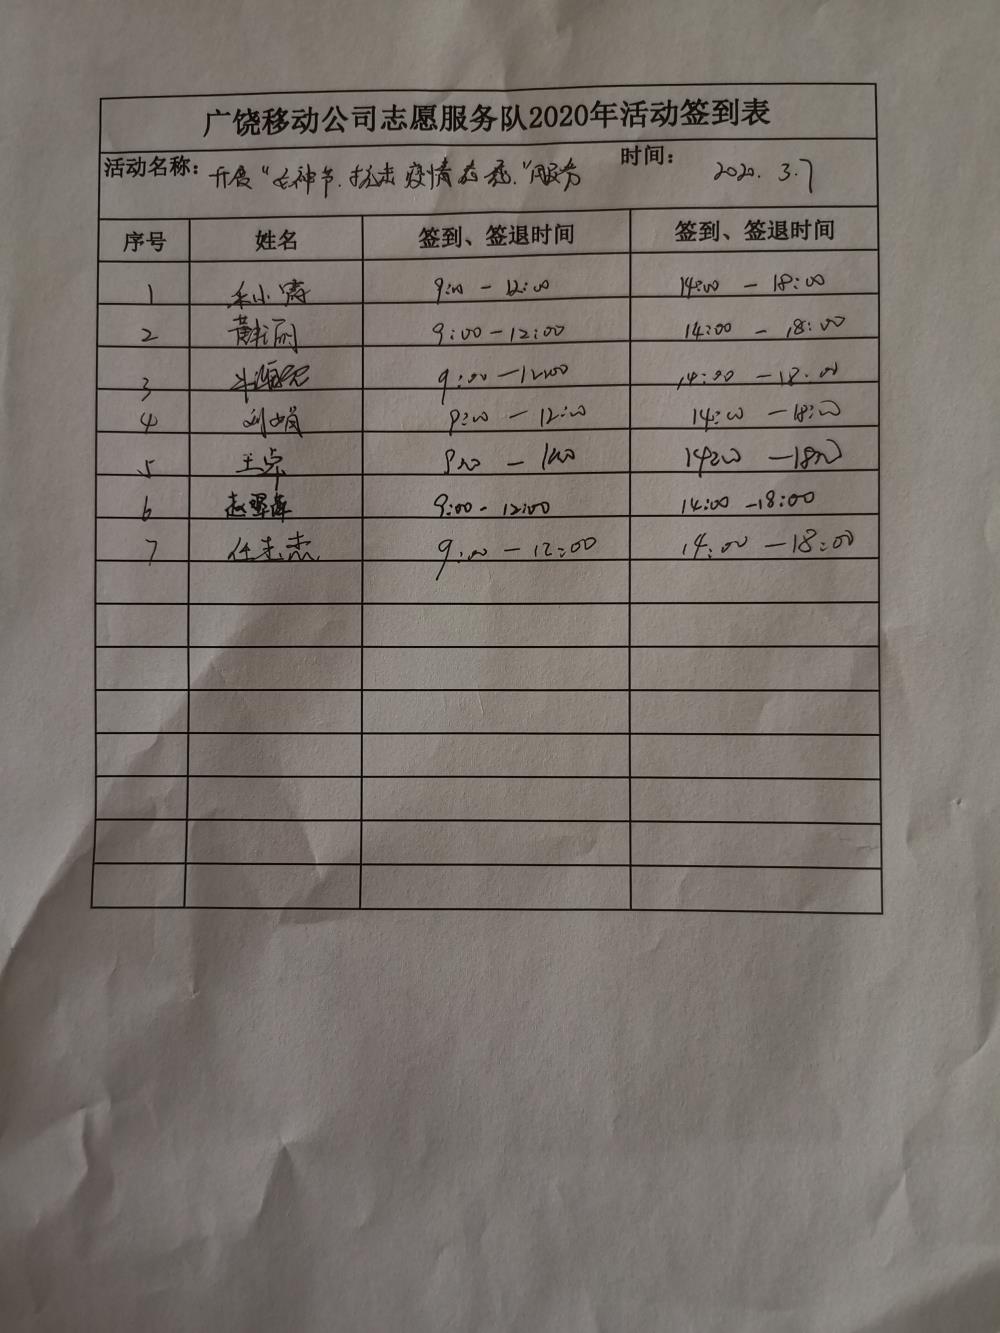 广饶移动公司志愿服务队2020年活动签到表
活动名称： 开展“女神节.抗击疫情 ”服务 时间： 2020. 3.7
序号 姓名 签到、签退时间 签到、签退时间
1 9:00 - 12:00 14:00 - 18:00
2 9:00 - 12:00 14:00 - 18:00
3 9:00 - 12:00 14:00 - 18:00
4 刘娟 9:00 - 12:00 14:00 - 18:00
5 王卓 9:00 - 14:00 - 18:00
6 赵翠萍 9:00 - 12:00 14:00 - 18:00
7 任志杰 9:00 - 12:00 14:00 - 18:00